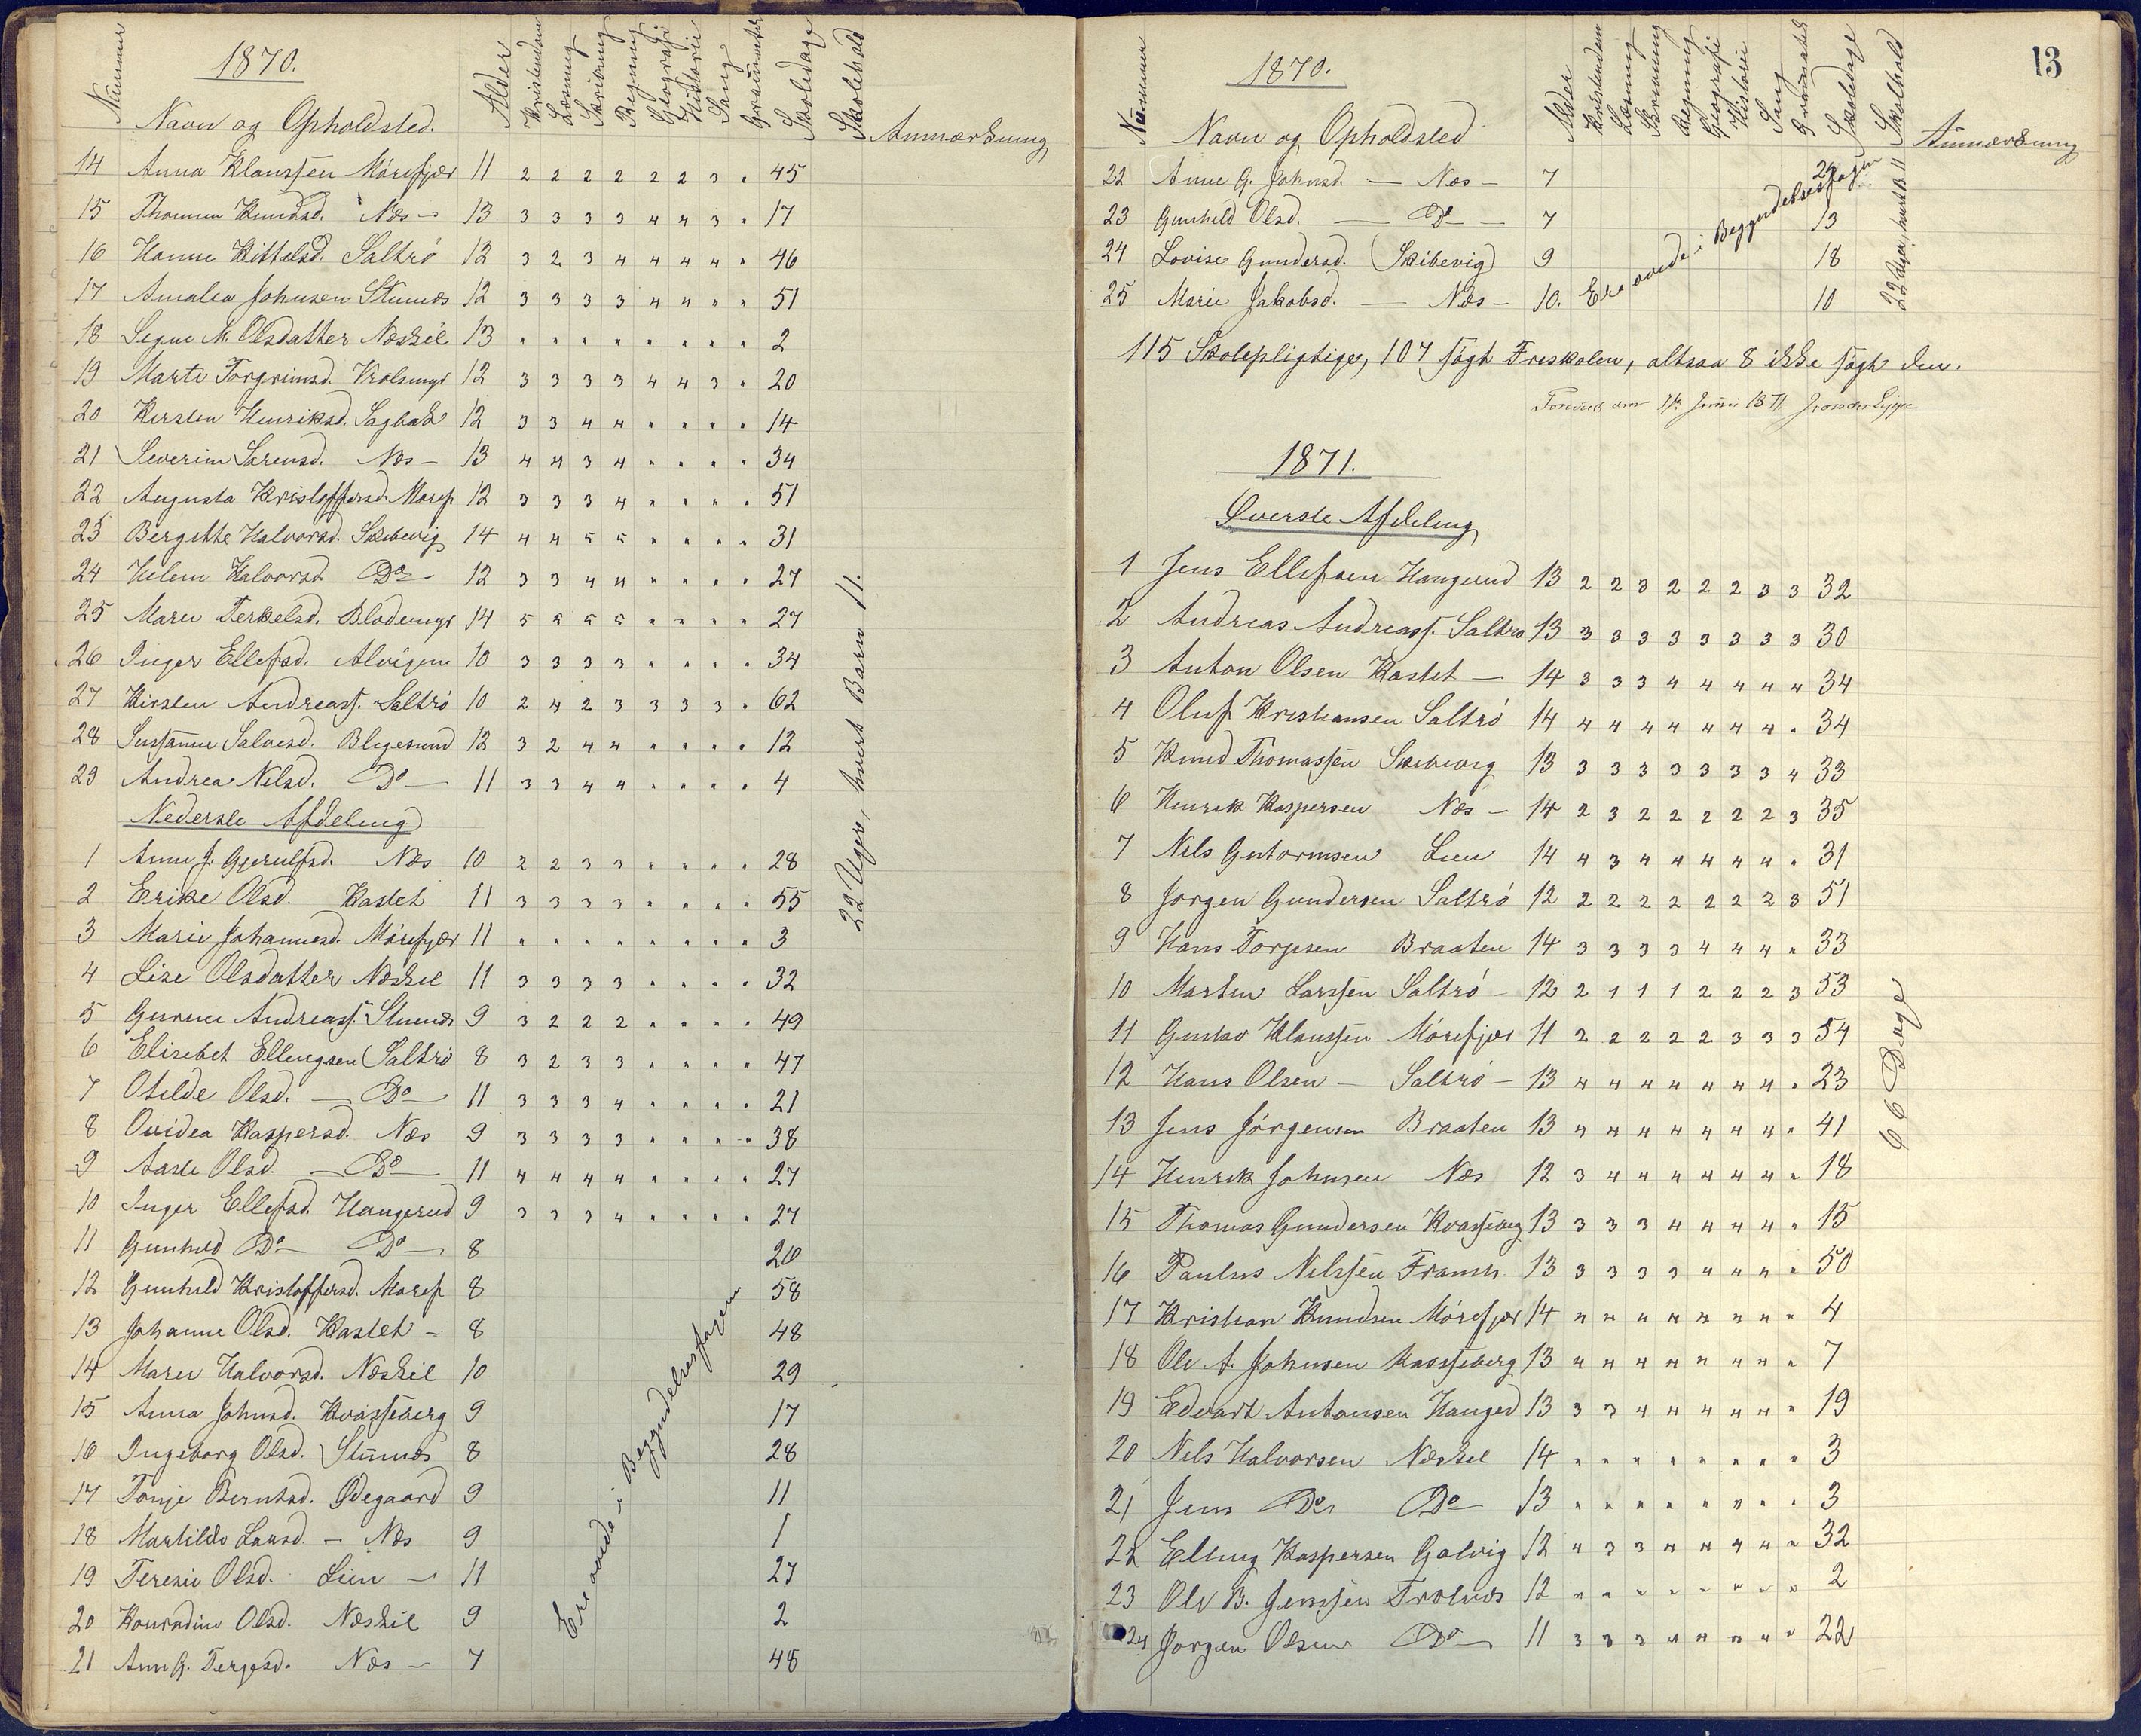 1870.
Nummer Navn og Opholdsted. Alder Kristendom Læsning Skrivning Regning Geografi Historie Sang Grammatik Skoledage Skolehold Anmærkning
14 Anna Klaussen Mórefjær 11 2 2 2 2 2 2 3 " 45
15 Thomine Knudsd. Næs - 13 3 3 3 3 4 4 3 " 17
16 Hanne Kittelsd. Saltró 12 3 2 3 4 4 4 4 " 46
17 Amalia Johnsen Stuenæs 12 3 3 3 3 4 4 " " 51
18 Signe M. Olsdatter Næskil 13 " " " " " " " " 2
19 Marte Torgrimsd. 12 3 3 3 3 4 4 3 " 20
20 Kirsten Henriksd. Sagbak 12 3 3 4 4 " " " " 14
21 Severine Sörensd. Næs - 13 4 4 3 4 " " " " 34
22 Augusta Kristoffersd. Moref 12 3 3 3 4 " " " " 51
23 Bergitte Halvorsd. Skibevig 14 4 4 5 5 " " " " 31
24 Helene Halvorsd. Do - 12 3 3 4 4 " " " " 27
25 Maren Terkelsd. 14 5 5 5 5 " " " " 27
26 Inger Ellefsd. Alvigen 10 3 3 3 3 " " " " 34
27 Kirsten Andreass. Saltró 10 2 4 2 3 3 3 3 " 62
28 Susanne Salvesd. 12 3 2 4 4 " " " " 12
29 Andrea Nilsd. Do - 11 3 3 4 4 " " " " 4
Nederste Afdeling
1 Anne J. Gjerulfsd. Næs 10 2 2 3 3 " " " " 28
2 Erike Olsd. Kastet 11 3 3 3 3 " " " " 55
3 Marie Johannesd. Mórefjær 11 " " " " " " " " 3
4 Lise Olsdatter Næskil 11 3 3 3 3 " " " " 32
5 Gurine Andreass. Stuenæs 9 3 2 2 2 " " " " 49
6 Elisebet Ellingsen Saltró 8 3 2 3 3 " " " " 47
7 Otilde Olsd. - Do - 11 3 3 3 4 " " " " 21
8 Ovidea Kaspersd. Næs 9 3 3 3 3 " " " " 38
9 Aasle Olsd. - Do - 11 4 4 4 4 " " " " 27
10 Inger Ellefsd. Haugerud 9 3 3 3 4 " " " " 27
11 Gunhild Do - Do - 8 20
12 Gunhild Kristoffersd. Moref 8 58
13 Johanne Olsd. Kastet - 8 48
14 Maren Halvorsd. Næskil 10 29
15 Anna Johnsd. Kvasseberg 9 17
16 Ingeborg Olsd. Stuenæs 8 28
17 Tonje Berntsd. Ødegaard 9 11
18 Martilde Larsd. - Næs 9 1
19 Teresie Olsd. Lien - 11 27
20 Konradine Olsd. Næskil 9 2
21 Ann G. Tergesd. Næs - 7 48
Ere øvede i Begyndelsesfagene
22 Uger, hvert Barn 11.
13
1870.
Nummer Navn og Opholdsted Alder Kristendom Læsning Skrivning Regning Geografi Historie Sang Grammatik Skoledage Skolehold Anmærkning
22 Anne G. Johnsd. - Næs - 7 29
23 Gunhild Olsd. - Do - 7 13
24 Lovise Gundersd. Skibevig 9 18
25 Marie Jakobsd. - Næs - 10. 10
Ere øvede i Begyndelsesfagene
22 Uger, hvert B. 11
115 Skolepligtige, 107 sógt Friskolen, altsaa 8 ikke sógt den.
1871.
Øverste Afdeling
1 Jens Ellefsen Haugerud 13 2 2 3 2 2 2 3 3 32
2 Andreas Andreass. Saltro 13 3 3 3 3 3 3 3 3 30
3 Anton Olsen Kastet - 14 3 3 3 4 4 4 4 4 34
4 Oluf Kristiansen Saltró 14 4 4 4 4 4 4 4 " 34
5 Knud Thomassen Skibevig 13 3 3 3 3 3 3 3 4 33
6 Henrik Kaspersen Næs - 14 2 3 2 2 2 2 2 3 35
7 Nils Gutormsen Lien 14 4 3 4 4 4 4 4 " 31
8 Jorgen Gundersen Saltró 12 2 2 2 2 2 2 2 3 51
9 Hans Torjusen Braaten 14 3 3 3 3 4 4 4 " 33
10 Morten Larssen Saltró - 12 2 1 1 1 2 2 2 3 53
11 Gustav Klaussen Mórefjær 11 2 2 2 2 2 3 3 3 54
12 Hans Olsen - Saltró - 13 4 4 4 4 4 4 4 " 23
13 Jens Jórgensen Braaten 13 4 4 4 4 4 4 4 " 41
14 Henrik Johnsen Næs 12 3 4 4 4 4 4 4 " 18
15 Thomas Gundersen Kvasseberg 13 3 3 3 4 4 4 4 " 15
16 Paulus Nilssen Framn. 13 3 3 3 3 4 4 4 " 50
17 Kristian Knudsen Mórefjær 14 " " " " " " " " 4
18 Ole A. Johnsen Kasseberg 13 4 4 4 4 4 4 4 " 7
19 Edvart Antonsen Hauged 13 3 3 4 4 4 4 4 " 19
20 Nils Halvorsen Næskil 14 " " " " " " " " 3
21 Jens Do Do - 13 " " " " " " " " 3
22 Elling Kaspersen Galvig 12 4 3 3 4 4 4 4 " 32
23 Ole B. Jenssen Trolnæs 12 " " " " " " " " 2
24 Jorgen Olsen Do - 11 3 3 3 4 4 4 4 " 22
66 Dage